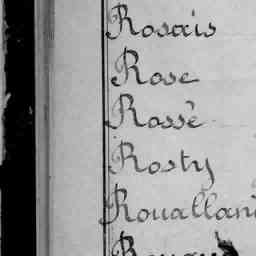 Rosais
Rose
Rossé
Rosty
Rouallan